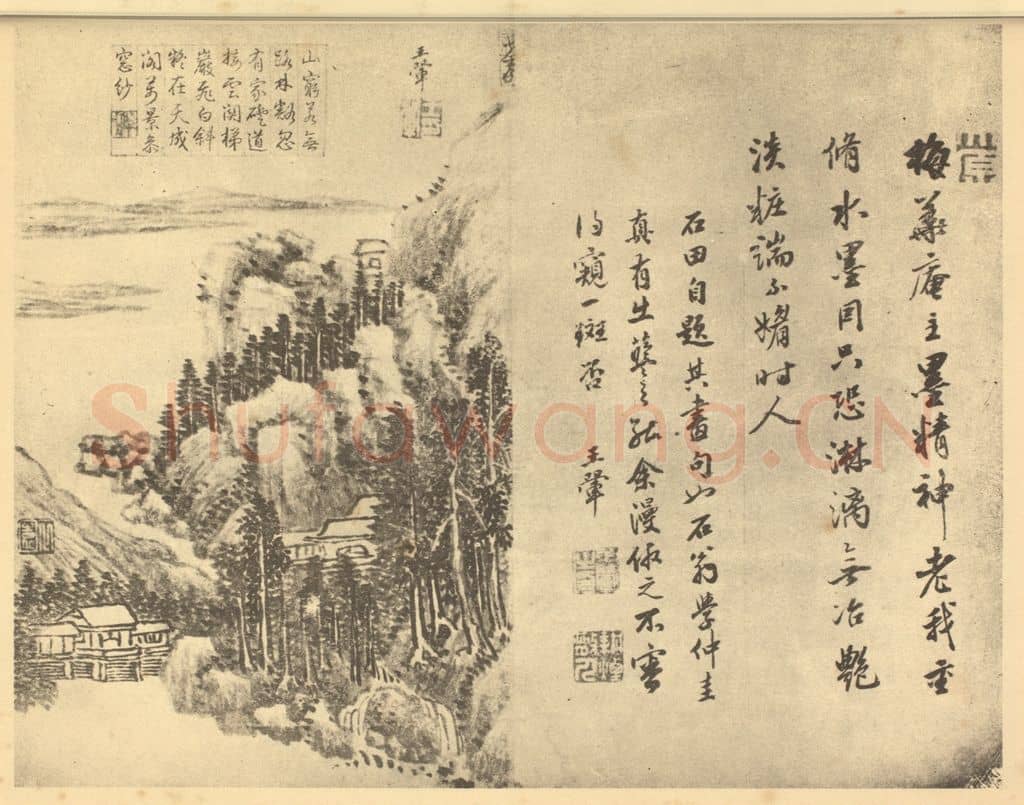 梅華庵主墨精神老我重
脩水墨因只恐淋漓無冶艷
淡粧端不媚時人
石田自題其畫句也石翁學仲圭
真有出藍之能余漫倣之不審
得窺一斑否
王犖
王犖
山窮若無
路林豁忽
有家磴道
接雲関梯
巖飛白斜
在天成
萬景
窓紗
Shufawang.CN